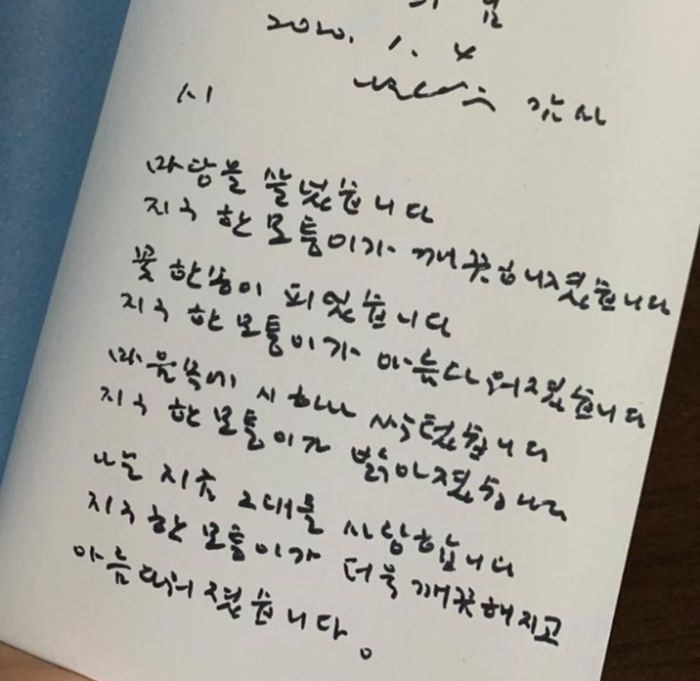 2020. 1. 4
감사
시
마당을 쓸었습니다
지구 한 모퉁이가 깨끗해졌습니다
꽃 한 송이 피었습니다
지구 한 모퉁이가 아름다워졌습니다
마음속에 시 하나 싹텄습니다
지구 한 모퉁이가 밝아졌습니다
나는 지금 그대를 사랑합니다
지구 한 모퉁이가 더욱 깨끗해지고
아름다워졌습니다。